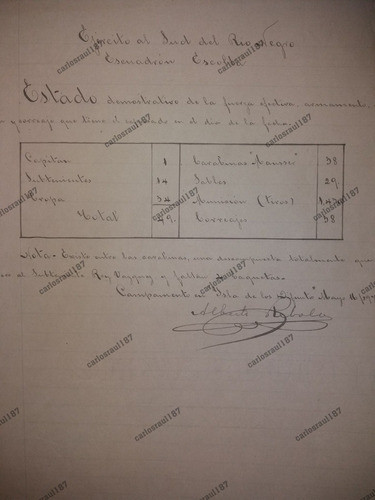 Ejército al Sud del Rio Negro
Escuadrón Escolta
Estado demostrativo de la fuerza efectiva, armament
y correaje que tiene el expresado en el dia de la fecha.
Capitan 1 Carabinas "Mauser" 38
Subtenientes 14 Sables 29
Tropa 34 Municion (tiros)
Total 49. Correajes 38
Nota - Existe entre las carabinas, una descompuesta totalmente que
el Subteniente Rey Vazquez y faltan 2 baquetas.
Campamento en "Isla de los" Mayo
Alberto
carlosraul187